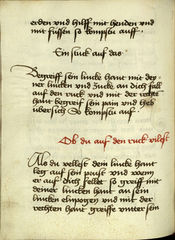 erden vnd hilff mit henden vnd
mit fussen so kompstu auff
Ein stuck auf das
Begreiff sein lincke hant mit dey
ner lincken vnd zucke an dich fall
auf den ruck vnd mit der rechte
hant begreif sein pain vnd heb
vbersich so kompstu auf
Ob du auf den ruck vilest
Als du vellest dein lincke hant
leg auf sein prust vnd wenn
er auf dich fellet so greiff mit
deiner lincken hant an sein
lincken elnpogen vnd mit der
rechten hant greiffe vnter sein